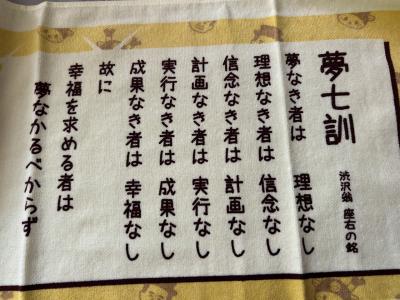 夢七訓
渋沢翁 座右の銘
夢なき者は 理想なし
理想なき者は 信念なし
信念なき者は 計画なし
計画なき者は 実行なし
実行なき者は 成果なし
成果なき者は 幸福なし
故に
幸福を求める者は
夢なかるべからず